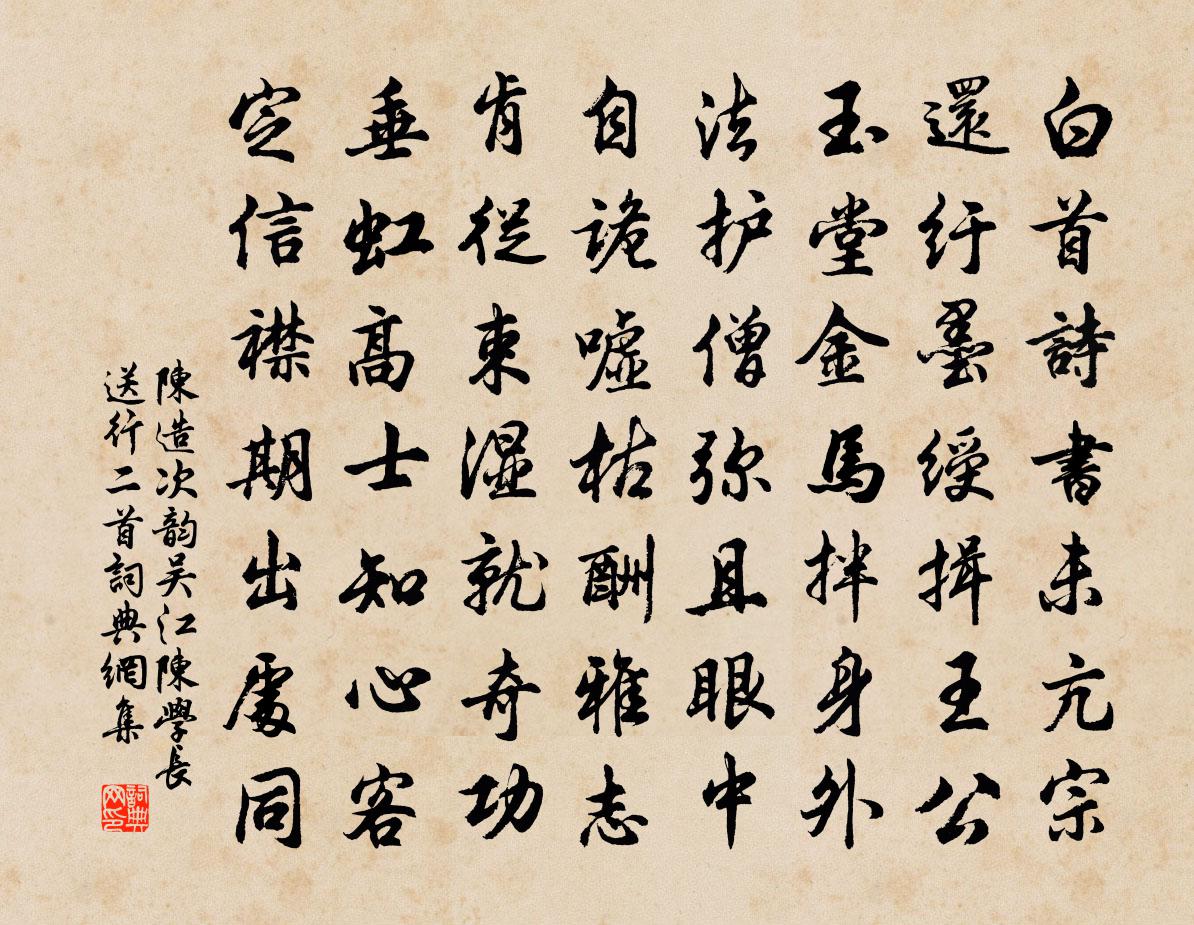 白首詩書未亢宗
還紆墨綬揖王公
玉堂金馬拌身外
法护僧弥且眼中
自詭噓枯酬雅志
肯從束濕就奇功
垂虹高士知心客
定信襟期出處同
陳造次韵吴江陳學長
送行二首詞典網集
詞典
网印